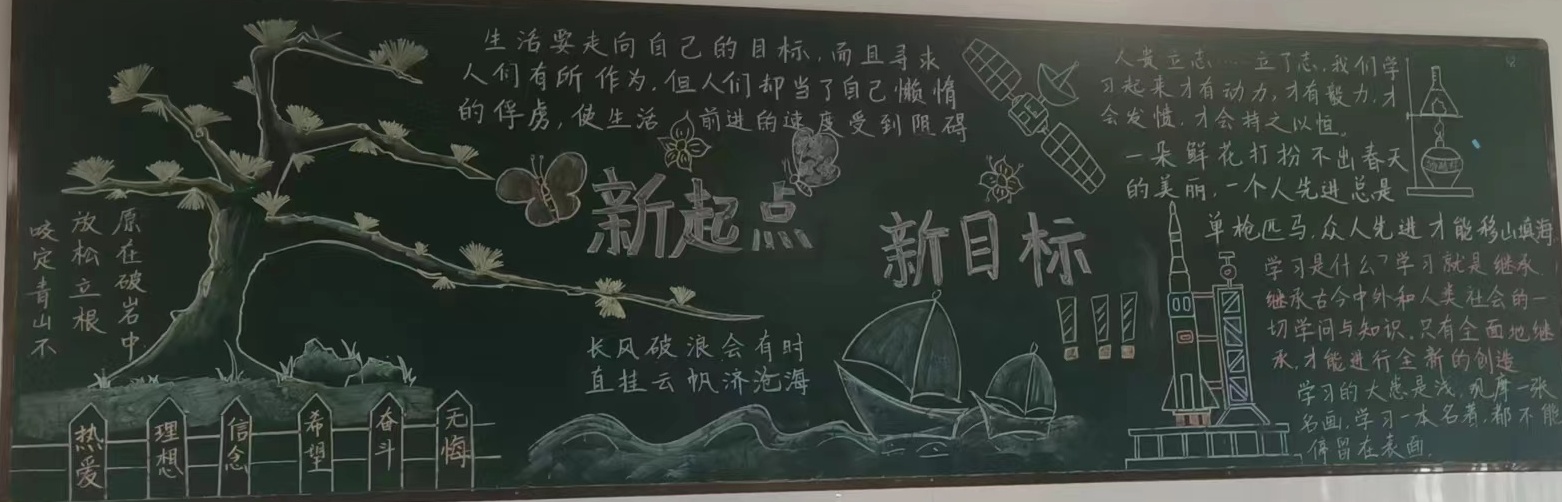 生活要走向自己的目标，而且寻求
人们有所作为，但人们却当了自己懒惰
的俘虏，使生活 前进的速度受到阻碍
新起点
新目标!!!
长风破浪会有时
直挂云帆济沧海
咬定青山不
放松立根
原在破岩中
热爱
理想
信念
希望
奋斗
无悔
人贵立志……立了志，我们学
习起来才有动力，才有毅力，才
会发愤，才会持之以恒。
一朵鲜花打扮不出春天
的美丽，一个人先进总是
单枪匹马，众人先进才能移山填海
学习是什么？学习就是继承，
继承古今中外和人类社会的一
切学问与知识，只有全面地继
承，才能进行全新的创造
学习的大忌是浅，观摩一张
名画，学习一本名著，都不能
停留在表面。